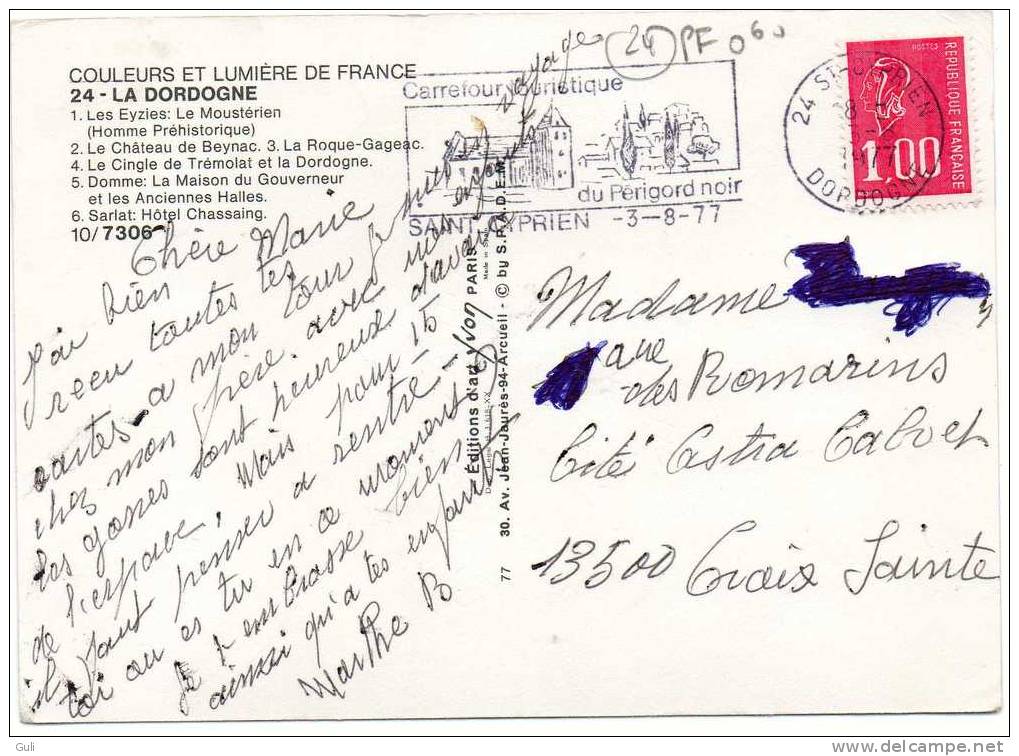 COULEURS ET LUMIÈRE DE FRANCE
24 - LA DORDOGNE
1. Les Eyzies: Le Moustérien
(Homme Préhistorique)
2. Le Château de Beynac. 3. La Roque-Gageac.
4. Le Cingle de Trémolat et la Dordogne.
5. Domme: La Maison du Gouverneur
et les Anciennes Halles.
6. Sarlat: Hôtel Chassaing.
10/7306
Chère Marie
J'ai bien
recu toutes tes
cartes a mon tour je suis en voyage
chez mon frère avec mes enfants
les gosses sont heureux d'avoir
de l'espace, Mais pour 15
il faut penser a rentré -
toi ou es tu en ce moment
Je t'embrasse bien
ainsi qu'a tes enfants
Marthe B
Éditions d'art Yvon PARIS
Made in
30. Av. Jean-Jaurès-94-Arcueil - © by S.P.A.D.E.M.
77
Carrefour touristique
du Périgord noir
SAINT CYPRIEN -3-8-77
24 PF 060
24 ST-CYPRIEN
DORDOGNE
POSTES
REPUBLIQUE FRANÇAISE
1,00
Madame
rue
des Romarins
Cité Castra Calvet
13500 Croix Sainte
Guli
www.delcampe.net